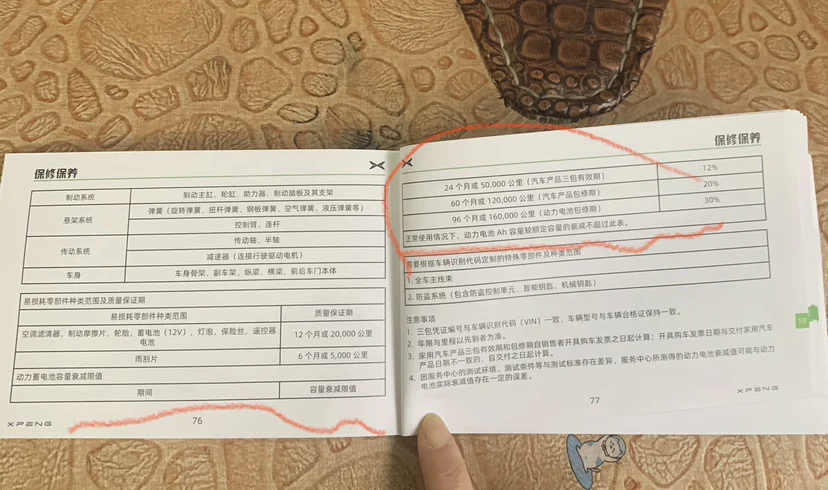 保修保养
制动系统 制动主缸、轮缸、助力器、制动踏板及其支架
悬架系统 弹簧(旋转弹簧、扭杆弹簧、钢板弹簧、空气弹簧、液压弹簧等)
控制臂、连杆
传动系统 传动轴、半轴
减速器(连接行驶驱动电机)
车身 车身骨架、副车架、纵梁、横梁、前后车门本体
易损耗零部件种类范围及质量保证期
易损耗零部件种类范围 质量保证期
空调滤清器、制动摩擦片、轮胎、蓄电池(12V)、灯泡、保险丝、遥控器
电池 12 个月或 20,000 公里
雨刮片 6 个月或 5,000 公里
动力蓄电池容量衰减限值
期间 容量衰减限值
XPENG
76
保修保养
24 个月或 50,000 公里(汽车产品三包有效期) 12%
60 个月或 120,000 公里(汽车产品包修期) 20%
96 个月或 160,000 公里(动力电池包修期) 30%
正常使用情况下,动力电池 Ah 容量较额定容量的衰减不超过此表。
需要根据车辆识别代码定制的特殊零部件及种类范围
1. 全车主线束
2. 防盗系统(包含防盗控制单元、智能钥匙、机械钥匙)
注意事项
1. 三包凭证编号与车辆识别代码(VIN)一致,车辆型号与车辆合格证保持一致。
2. 年限与里程以先到者为准。
3. 家用汽车产品三包有效期和包修期自销售者开具购车发票之日起计算;开具购车发票日期与交付家用汽车
产品日期不一致的,自交付之日起计算。
4. 因服务中心的测试环境,测试条件等与测试标准存在差异,服务中心所测得的动力电池衰减值可能与动力
电池实际衰减值存在一定的误差。
77
XPENG
10